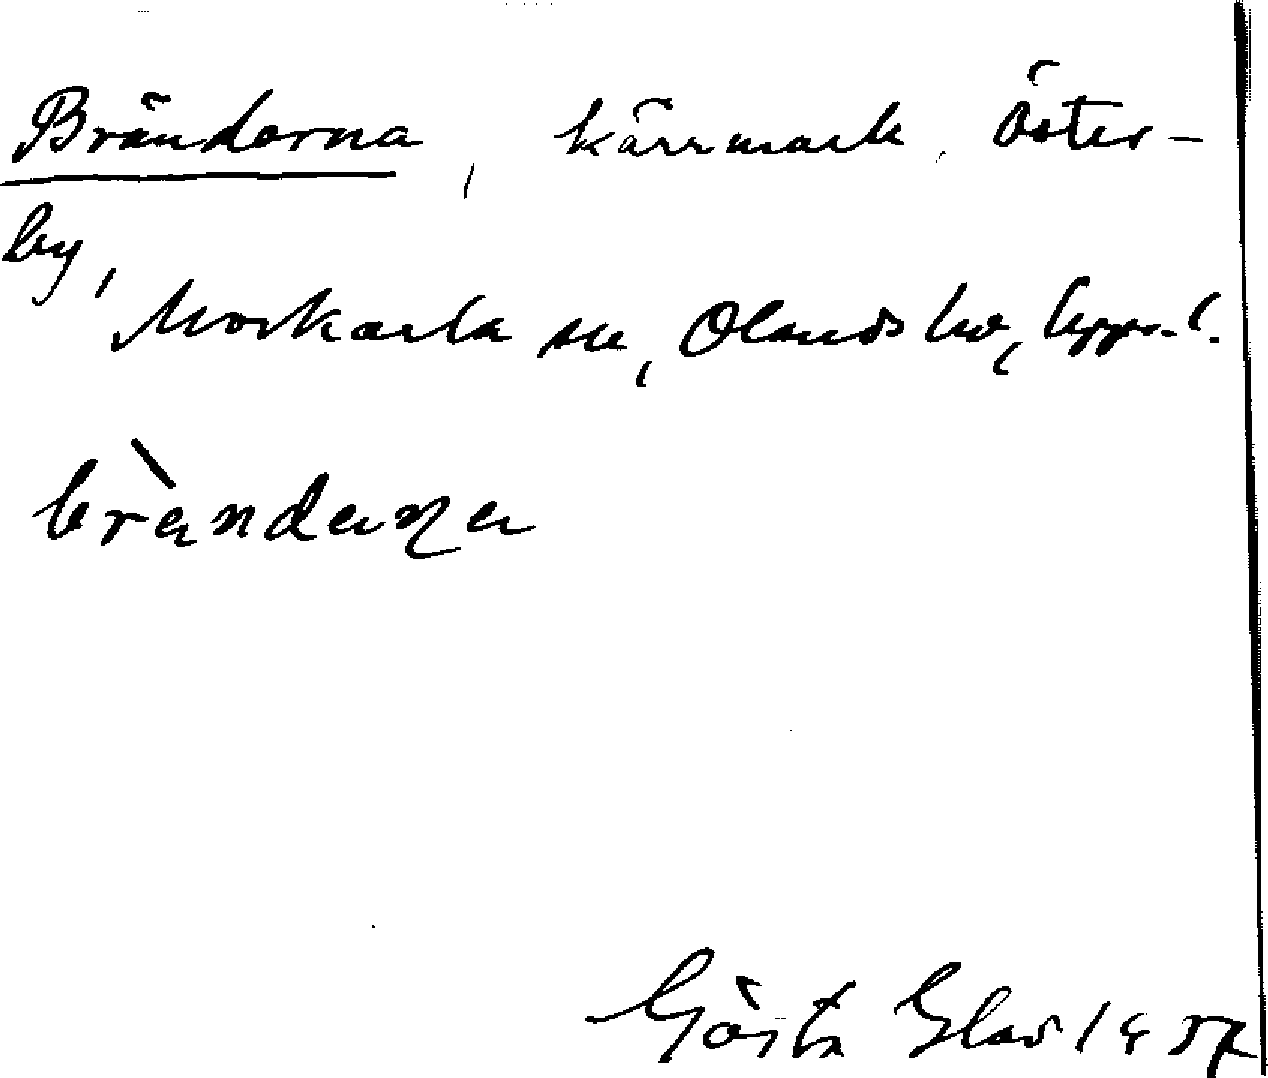 Bränderna, kärrmark, Öster-
by, Morkarla sn, Olands hd, Uppl.
bràndaṇa
Gösta Glas 1957